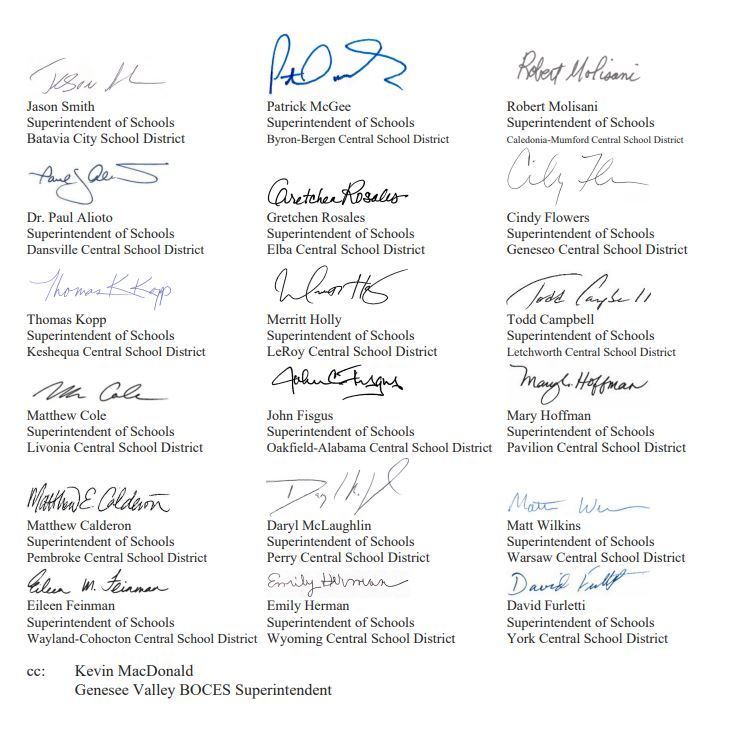 Jason
Jason Smith
Superintendent of Schools
Batavia City School District
Patrick McGee
Superintendent of Schools
Byron-Bergen Central School District
Robert Molisani
Robert Molisani
Superintendent of Schools
Caledonia-Mumford Central School District
Dr. Paul Alioto
Superintendent of Schools
Dansville Central School District
Gretchen Rosales
Gretchen Rosales
Superintendent of Schools
Elba Central School District
Cindy Flowers
Superintendent of Schools
Geneseo Central School District
Thomas K Kopp
Thomas Kopp
Superintendent of Schools
Keshequa Central School District
Merritt Holly
Superintendent of Schools
LeRoy Central School District
Todd Campbell
Todd Campbell
Superintendent of Schools
Letchworth Central School District
Cole
Matthew Cole
Superintendent of Schools
Livonia Central School District
John C Fisgus
John Fisgus
Superintendent of Schools
Oakfield-Alabama Central School District
Mary C. Hoffman
Mary Hoffman
Superintendent of Schools
Pavilion Central School District
Matthew E. Calderon
Matthew Calderon
Superintendent of Schools
Pembroke Central School District
Daryl McLaughlin
Superintendent of Schools
Perry Central School District
Matt
Matt Wilkins
Superintendent of Schools
Warsaw Central School District
Eileen M. Feinman
Eileen Feinman
Superintendent of Schools
Wayland-Cohocton Central School District
Emily Herman
Emily Herman
Superintendent of Schools
Wyoming Central School District
David
David Furletti
Superintendent of Schools
York Central School District
cc: Kevin MacDonald
Genesee Valley BOCES Superintendent